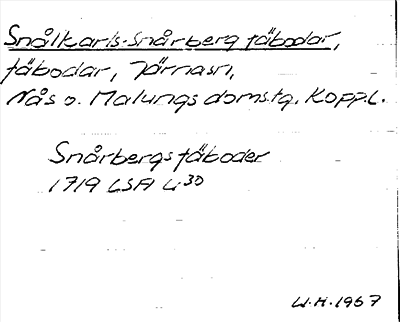 Snålkarls-Snårberg fäbodar,
fäbodar, Järnasn,
Nås o. Malungs domstg. Kopp.l.
Snårbergs fäboder
1719 LSA U:30
W.H. 1967